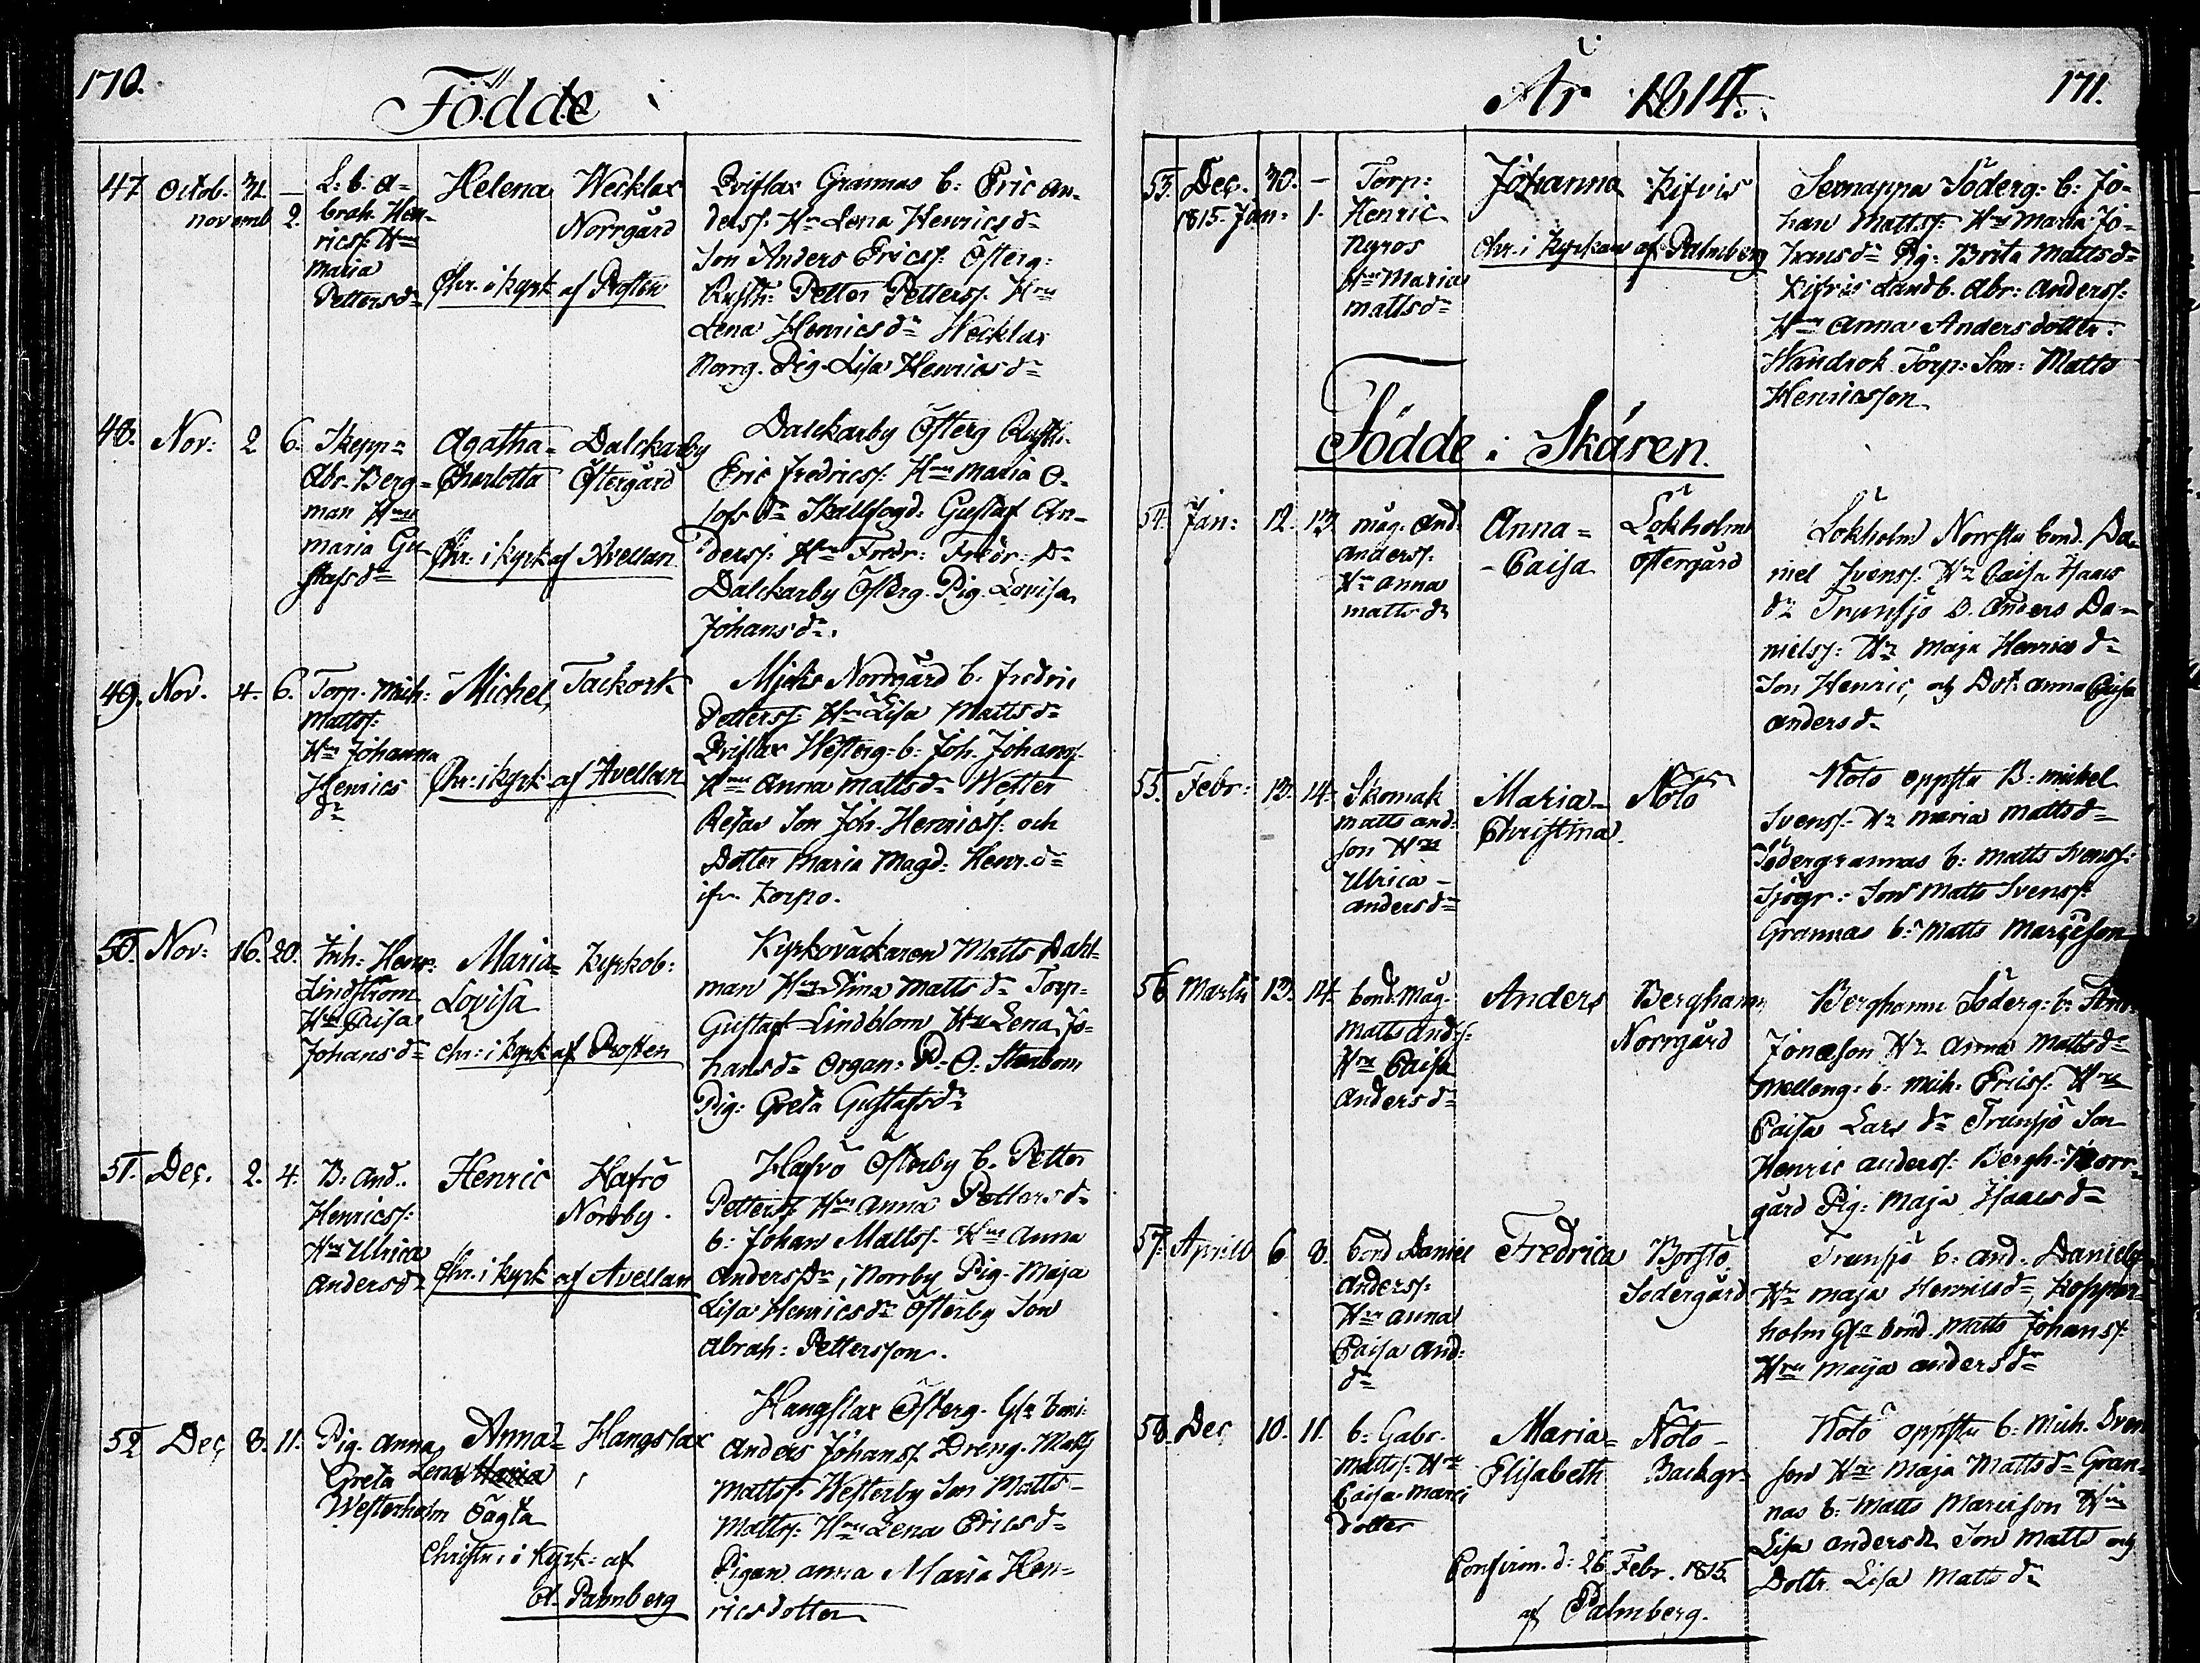 170.
Födde i
47 Octob. 31. —
novemb 2.
L: b: A=
brah. Hen-
ricss: Hru
Maria
Petters dr
Helena
Wecklax
Norrgård
Chr. i kyrk af Prosten
Qviflax Grannas b: Eric An-
derss: Hr Lena Henrics dr
Son Anders Ericss: Österg:
Rusth: Petter Petterss. Hru
Lena Henrics dr Wecklax
Norrg. Pig. Lisa Henrics dr
48. Nov: 2 6.
Skepp=
Abr. Berg=
man Hru
Maria Gu-
stafs dr
Agatha=
Charlotta
Dalckarby
Östergård
Chr: i kyrk af Avellan
Dalckarby Österg Rusth.
Eric Fredricss: Hru Maria O-
lofs dr Skallfogd: Gustaf An-
derss: Hru Fredr: Fredr: dr
Dalckarby Österg. Pig. Lovisa
Johans dr.
49. Nov. 4. 6.
Torp. Mich:
Matts:
Hru Johanna
Henrics
dr
Michel,
Tackork
Chr: i kyrk af Avellan
Mjeks Norrgård b. Fredric
Petterss: Hru Lisa Matts dr
Qviflax Westerg: b: Joh. Johanss.
Hru Anna Matts dr Wetter
Son Joh. Henricss: och
Dotter Maria Magd: Henr. dr
ifr. Korpo.
50. Nov: 16. 20.
Inh: Henr:
Lindström
Hru Caisa
Johans dr
Maria=
Lovisa
Kyrkob:
Chr: i kyrk af Prosten
Kyrkoväcktaren Matts Dahl=
man Hru Stina Matts dr Torp=
Gustaf Lindblom Hru Lena Jo=
hans dr Organ: P. O. Stenbom
Pig: Greta Gustafs dr
51. Dec. 2. 4.
B: And.
Henricss:
Hru Ulrica
Anders dr
Henric
Hafrö
Norrby.
Chr. i kyrk af Avellan
Hafrö Österby b. Petter
Petterss Hru Anna Petters dr
b: Johan Matts. Hru Anna
Anders dr, Norrby Pig. Maja
Lisa Henrics dr Österby Son
Abrah: Pettersson.
52 Dec 8. 11.
Pig. Anna
Greta
Westerholm
Anna=
Lena Maria
oägta
Hangslax
Christn: i Kyrk: af
A. Palmberg
Hangslax Österg. Gla bon:
Anders Johanss. Dreng. Matts
Mattss: Westerby Son Matts
Mattss: Hru Lena Erics dr
Pigan Anna Maria Hen=
ricsdotter
År 1814.
171.
53. Dec. 30. —
1815. Jan: 1.
Torp:
Henric
Nyros
Hru Maria
Matts dr
Johanna
Kifvis
Chr. i Kyrkan af Palmberg
Sernappa Söderg: b: Jo-
han Mattss: Hru Maria Jo-
hans dr Pig: Brita Matts dr
Kifvis Landb. Abr: Anderss:
Hru Anna Andersdotter.
Wandrok Torp: Son: Matts
Henricsson
Födde i Skären.
54. Jan: 12. 13.
Mäg. And.
Anderss:
Hr Anna
Matts dr
Anna=
-Caisa
Lökholm
Östergård
Lökholm Norrstu bond. Da-
niel Svenss: Hr Caisa Isaacs
dr Trunsjö B. Anders Da-
nielss: Hr Maja Henrics dr
Son Henric, och Dot: Anna Caisa
Anders dr
55. Febr: 13. 14.
Skomak
Matts And:
son Hru
Ulrica
Anders dr
Maria=
Christina.
Nötö
Nötö oppstu B: Mickel
Svenss: Hr Maria Matts dr
Södergrannas b: Matts Svenss:
Son Matts Svenss:
Grannas b: Matts Marcusson
56 Martii 13. 14.
bond. Mäg.
Matts Andss:
Hru Caisa
Anders dr
Anders
Berghamn
Norrgård
Berghamn Söderg: b:
Jonasson Hr Anna Matts dr
Melleng: b: Mich: Ericss: Hru
Caisa Lars dr Trunsjö Son
Henric Anderss: Bergh. Norr-
gård Pig: Maja Isaacs dr
57. Aprill 6 8.
bond Daniel
Anderss:
Hru Anna
Caisa And:
dr
Fredrica
Borstö
Södergård
Trunsjö b: And: Danielss
Hru Maja Henrics dr, Kopper-
holm Gla bond. Matts Johanss:
Hru Maja Anders dr
58. Dec 10. 11.
b: Gabr.
Mattss: Hru
Caisa Marci
dotter
Maria=
Elisabeth
Nötö-
Backgr.
Confirm. d: 26 Febr. 1815
af Palmberg.
Nötö oppstu b: Mich. Sven
son Hru Maja Matts dr Gran-
nas b: Matts Marcusson Hru
Lisa Anders dr Son Matts och
Dottr. Lisa Matts dr